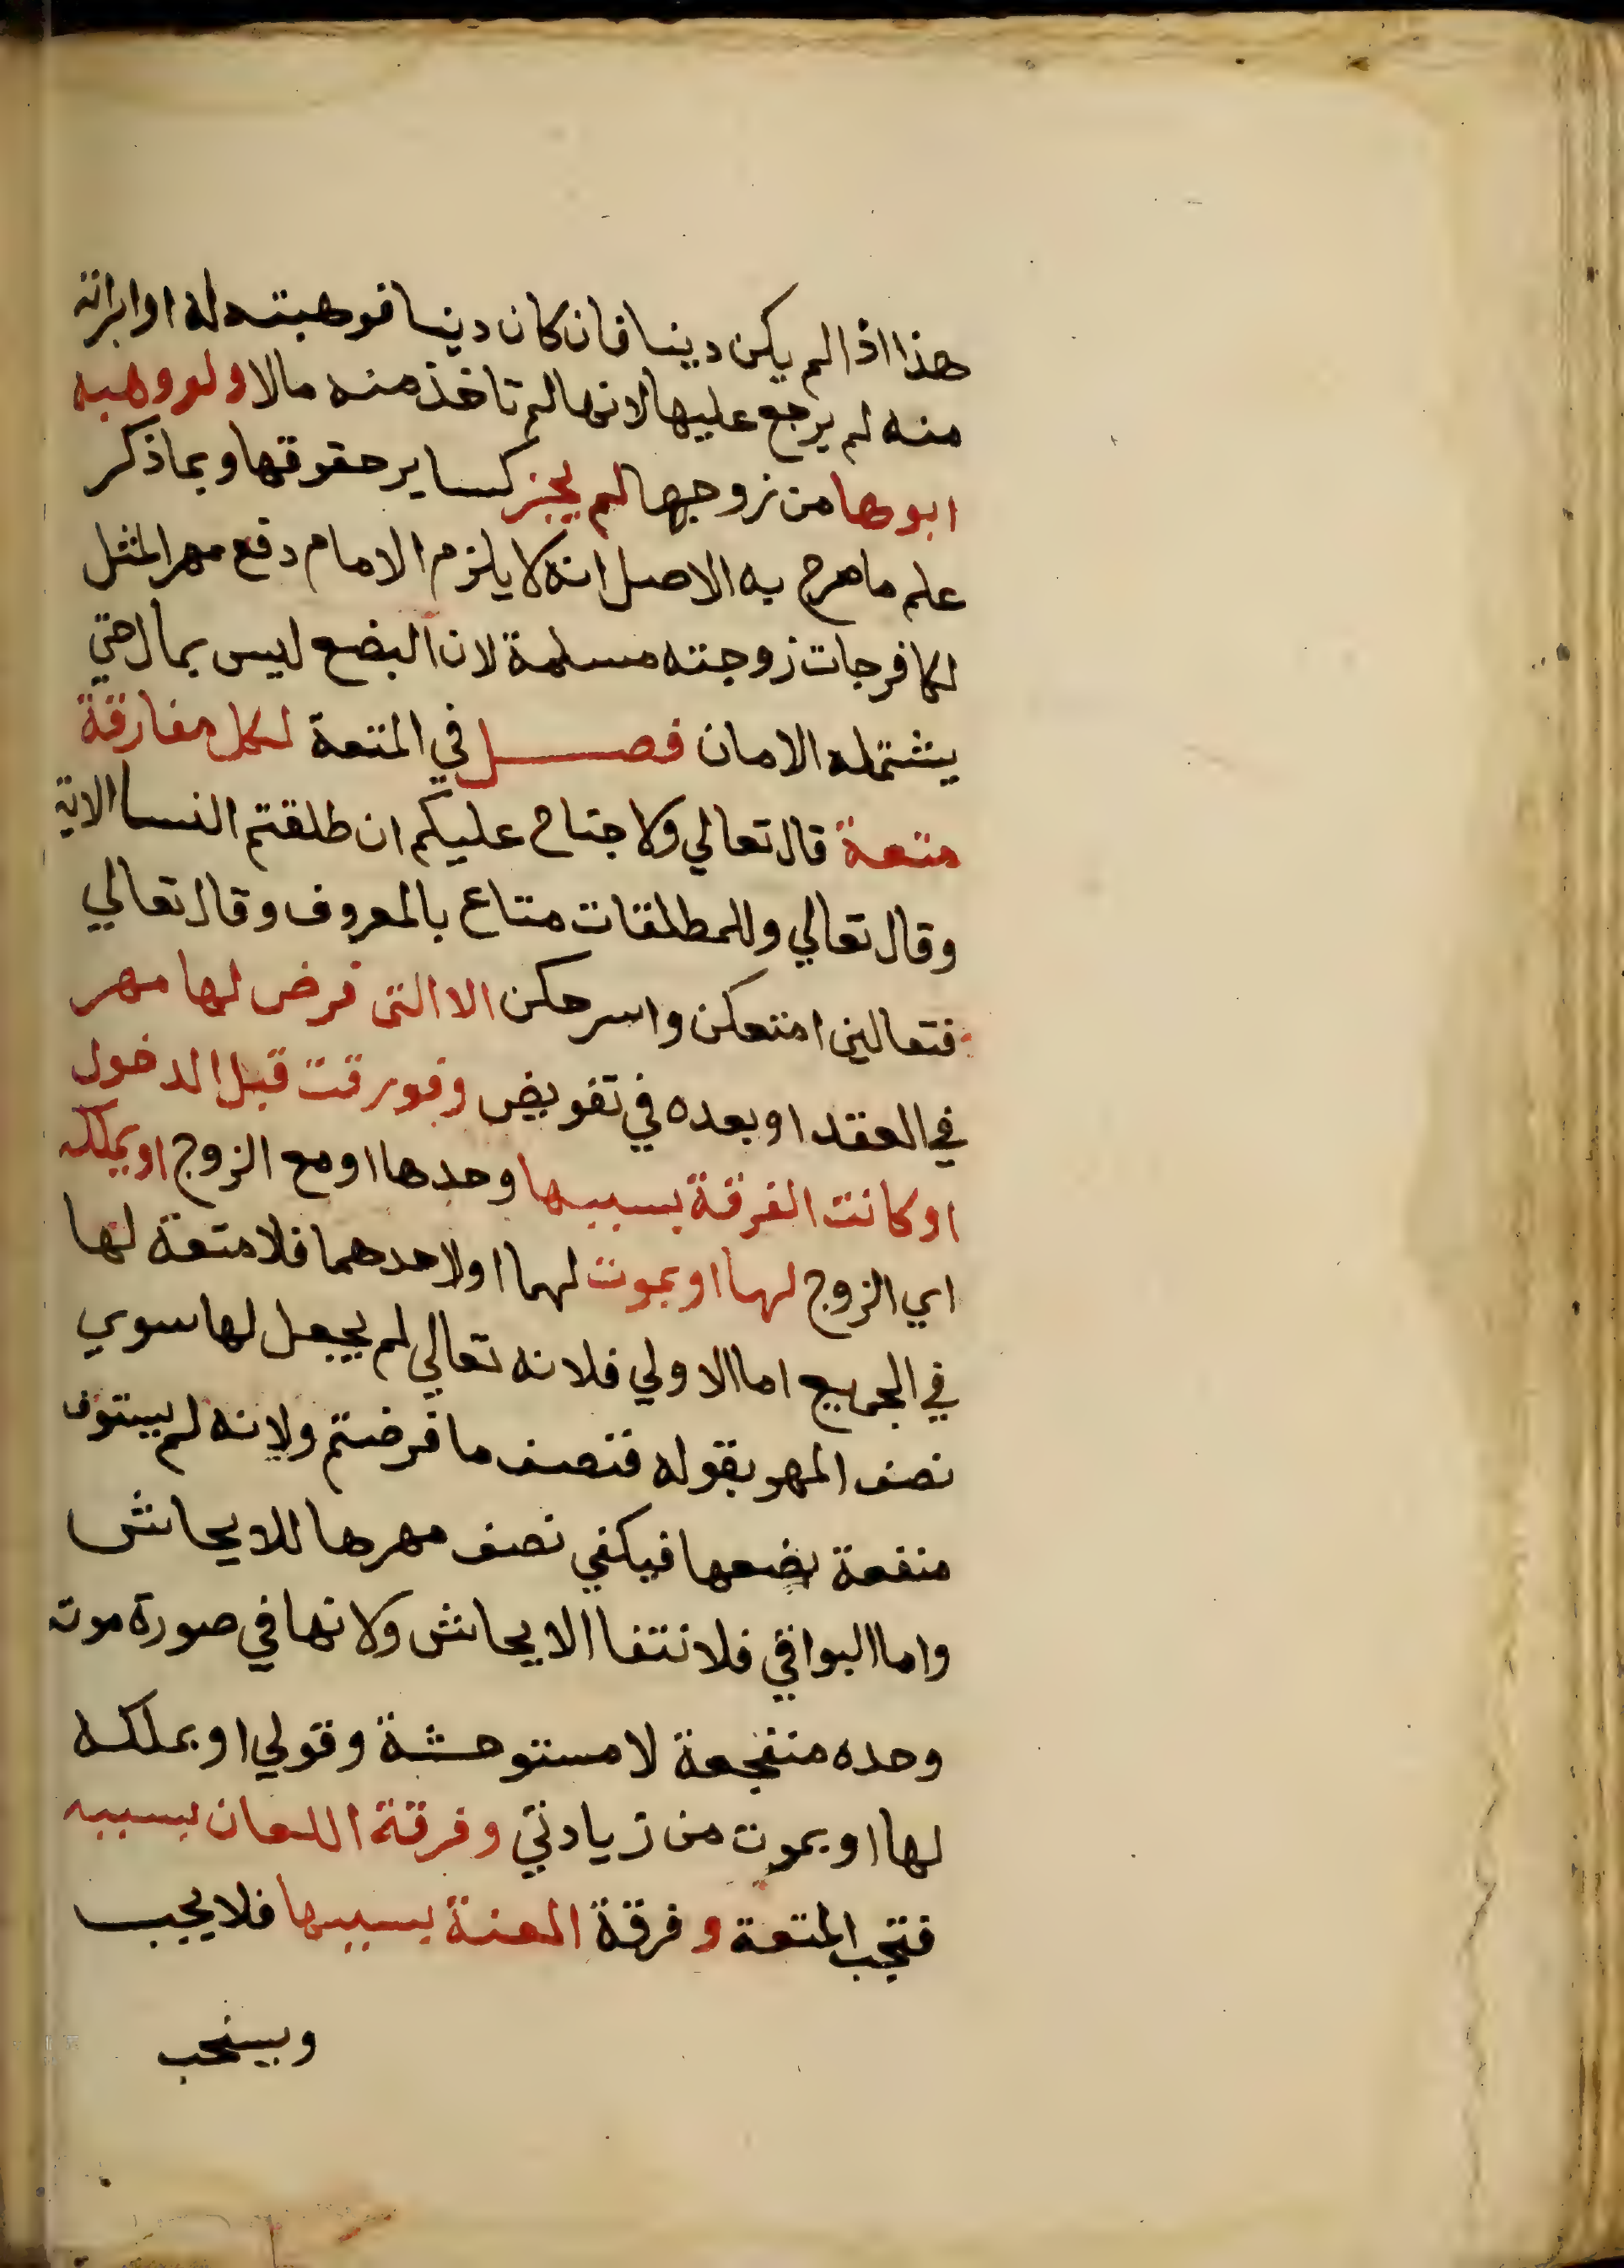 هذا اذا لم يكن دينا فان كان دينا فوهبته له او ابراته
منه لم يرجع عليها لانها لم تاخذ منه مالا ولو وهبه
ابوها من زوجها لم يجز كساير حقوقها وبما ذكر
علم ما صرح به الاصل انه لا يلزم الامام دفع مهر المثل
لكافر جات زوجته مسلمة لان البضع ليس بمال حتي
يشتمله الامان فصل في المتعة لكل مفارقة
متعة قال تعالي ولا جناح عليكم ان طلقتم النسا الاية
وقال تعالي وللمطلقات متاع بالمعروف وقال تعالي
فتعالين امتعكن واسرحكن الا التى فرض لها مهر
في العقد او بعده في تفويض وفورقت قبل الدخول
او كانت الفرقة بسببها وحدها او مع الزوج او بملكه
اي الزوج لها او بموت لهما او لاحدهما فلا متعة لها
في الجميع اما الاولي فلانه تعالي لم يجعل لها سوي
نصف المهر بقوله فنصف ما فرضتم ولانه لم يستوف
منفعة بضعها فيكفي نصف مهرها للايحاش
واما البواقي فلانتفا الايحاش ولانها في صورة موته
وحده متفجعة لا مستوحشة وقولي او بملكه
لها او بموت من زيادتي وفرقة اللعان بسببه
فتجب المتعة وفرقة العنة بسببها فلا يجب
ويستحب